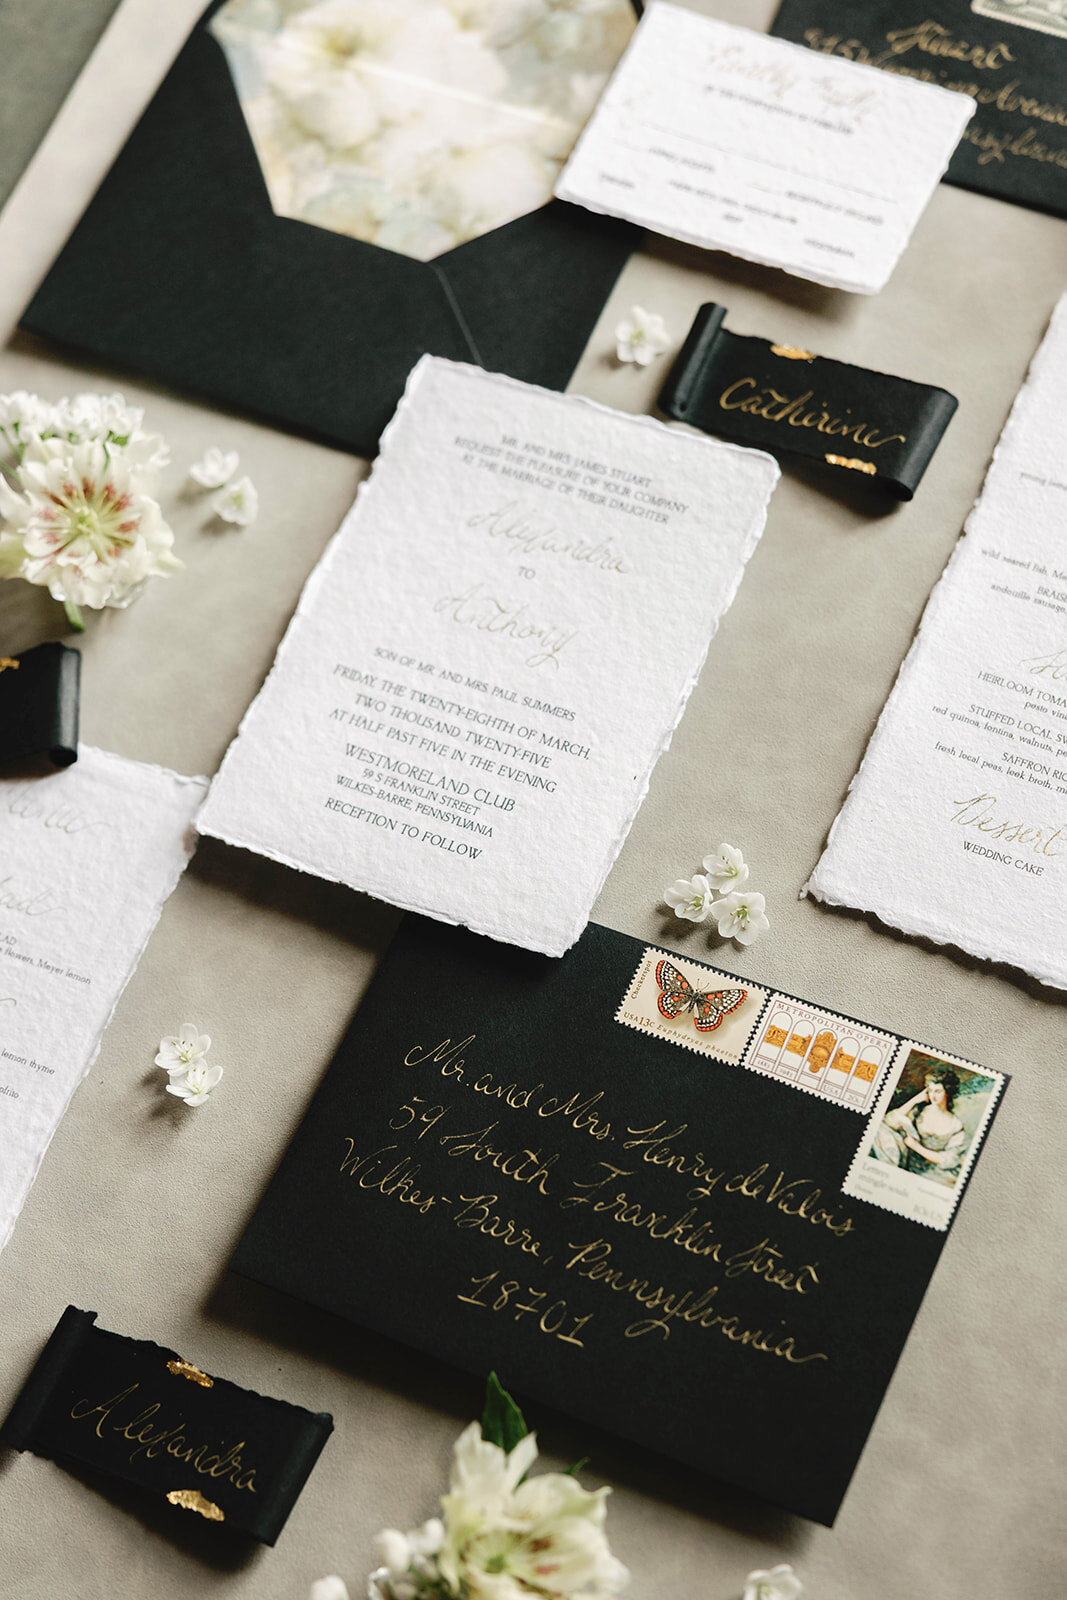 Stuart
Catherine
MR. AND MRS. JAMES STUART
REQUEST THE PLEASURE OF YOUR COMPANY
AT THE MARRIAGE OF THEIR DAUGHTER
Alexandra
TO
Anthony
SON OF MR. AND MRS. PAUL SUMMERS
FRIDAY, THE TWENTY-EIGHTH OF MARCH,
TWO THOUSAND TWENTY-FIVE
AT HALF PAST FIVE IN THE EVENING
WESTMORELAND CLUB
59 S FRANKLIN STREET
WILKES-BARRE, PENNSYLVANIA
RECEPTION TO FOLLOW
wild seared fish, Me
BRAIS
andouille sausage,
HEIRLOOM TOMA
pesto vina
STUFFED LOCAL SW
red quinoa, fontina, walnuts, pe
SAFFRON RIC
fresh local peas, leek broth, m
Dessert
WEDDING CAKE
LAD
flowers, Meyer lemon
lemon thyme
ofrito
Checkerspot
USA 13c Euphydryas phaeton
METROPOLITAN OPERA
Letters
mingle souls
Mr. and Mrs. Henry de Valois
59 South Franklin Street
Wilkes-Barre, Pennsylvania
18701
Alexandra